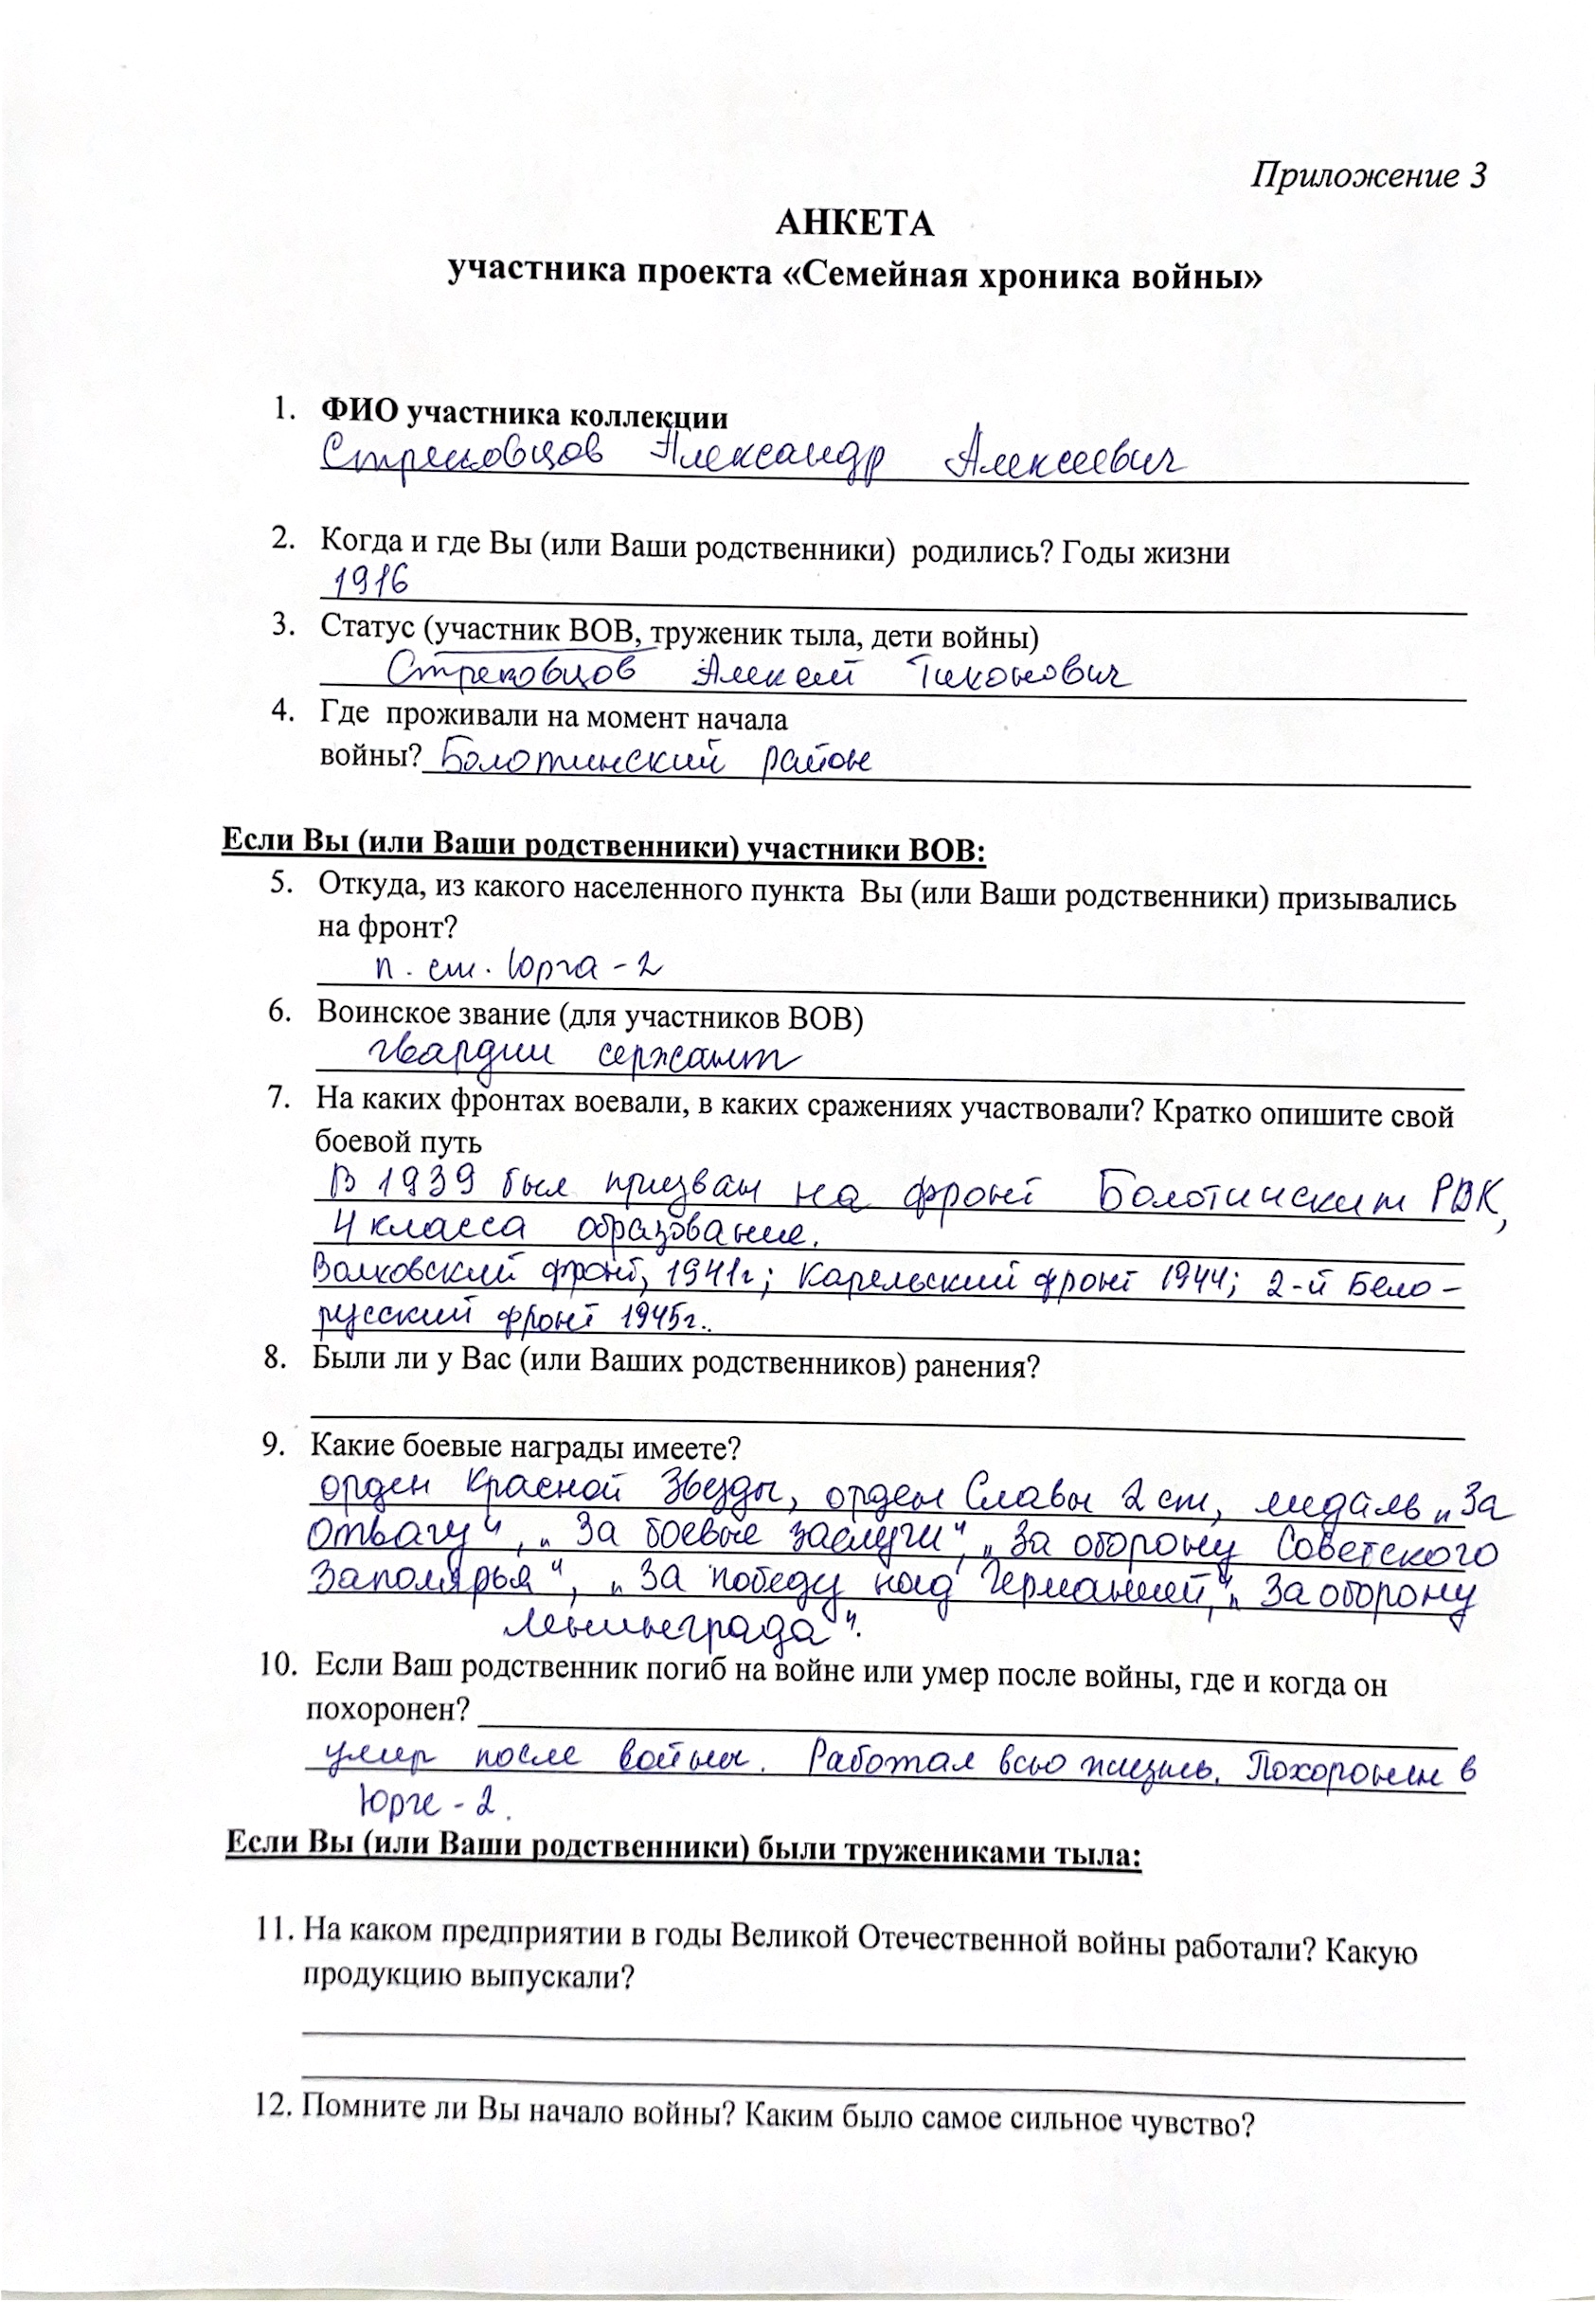 Приложение 3
АНКЕТА
участника проекта «Семейная хроника войны»
1. ФИО участника коллекции
Стрековцов Александр Алексеевич
2. Когда и где Вы (или Ваши родственники) родились? Годы жизни
1916
3. Статус (участник ВОВ, труженик тыла, дети войны)
Стрековцов Алексей Тихонович
4. Где проживали на момент начала
войны? Болотинский район
Если Вы (или Ваши родственники) участники ВОВ:
5. Откуда, из какого населенного пункта Вы (или Ваши родственники) призывались
на фронт?
п. ст. Юрга-2
6. Воинское звание (для участников ВОВ)
гвардии сержант
7. На каких фронтах воевали, в каких сражениях участвовали? Кратко опишите свой
боевой путь
В 1939 был призван на фронт Болотинским РВК,
4 класса образование.
Волховский фронт, 1941г; Карельский фронт 1944; 2-й Бело-
русский фронт 1945г..
8. Были ли у Вас (или Ваших родственников) ранения?
9. Какие боевые награды имеете?
орден Красной Звезды, орден Славы 2 ст, медаль „За
Отвагу“, „За боевые заслуги“, „За оборону Советского
Заполярья“, „За победу над Германией“, „За оборону
Ленинграда“.
10. Если Ваш родственник погиб на войне или умер после войны, где и когда он
похоронен?
умер после войны. Работал всю жизнь. Похоронен в
Юрге-2.
Если Вы (или Ваши родственники) были тружениками тыла:
11. На каком предприятии в годы Великой Отечественной войны работали? Какую
продукцию выпускали?
12. Помните ли Вы начало войны? Каким было самое сильное чувство?